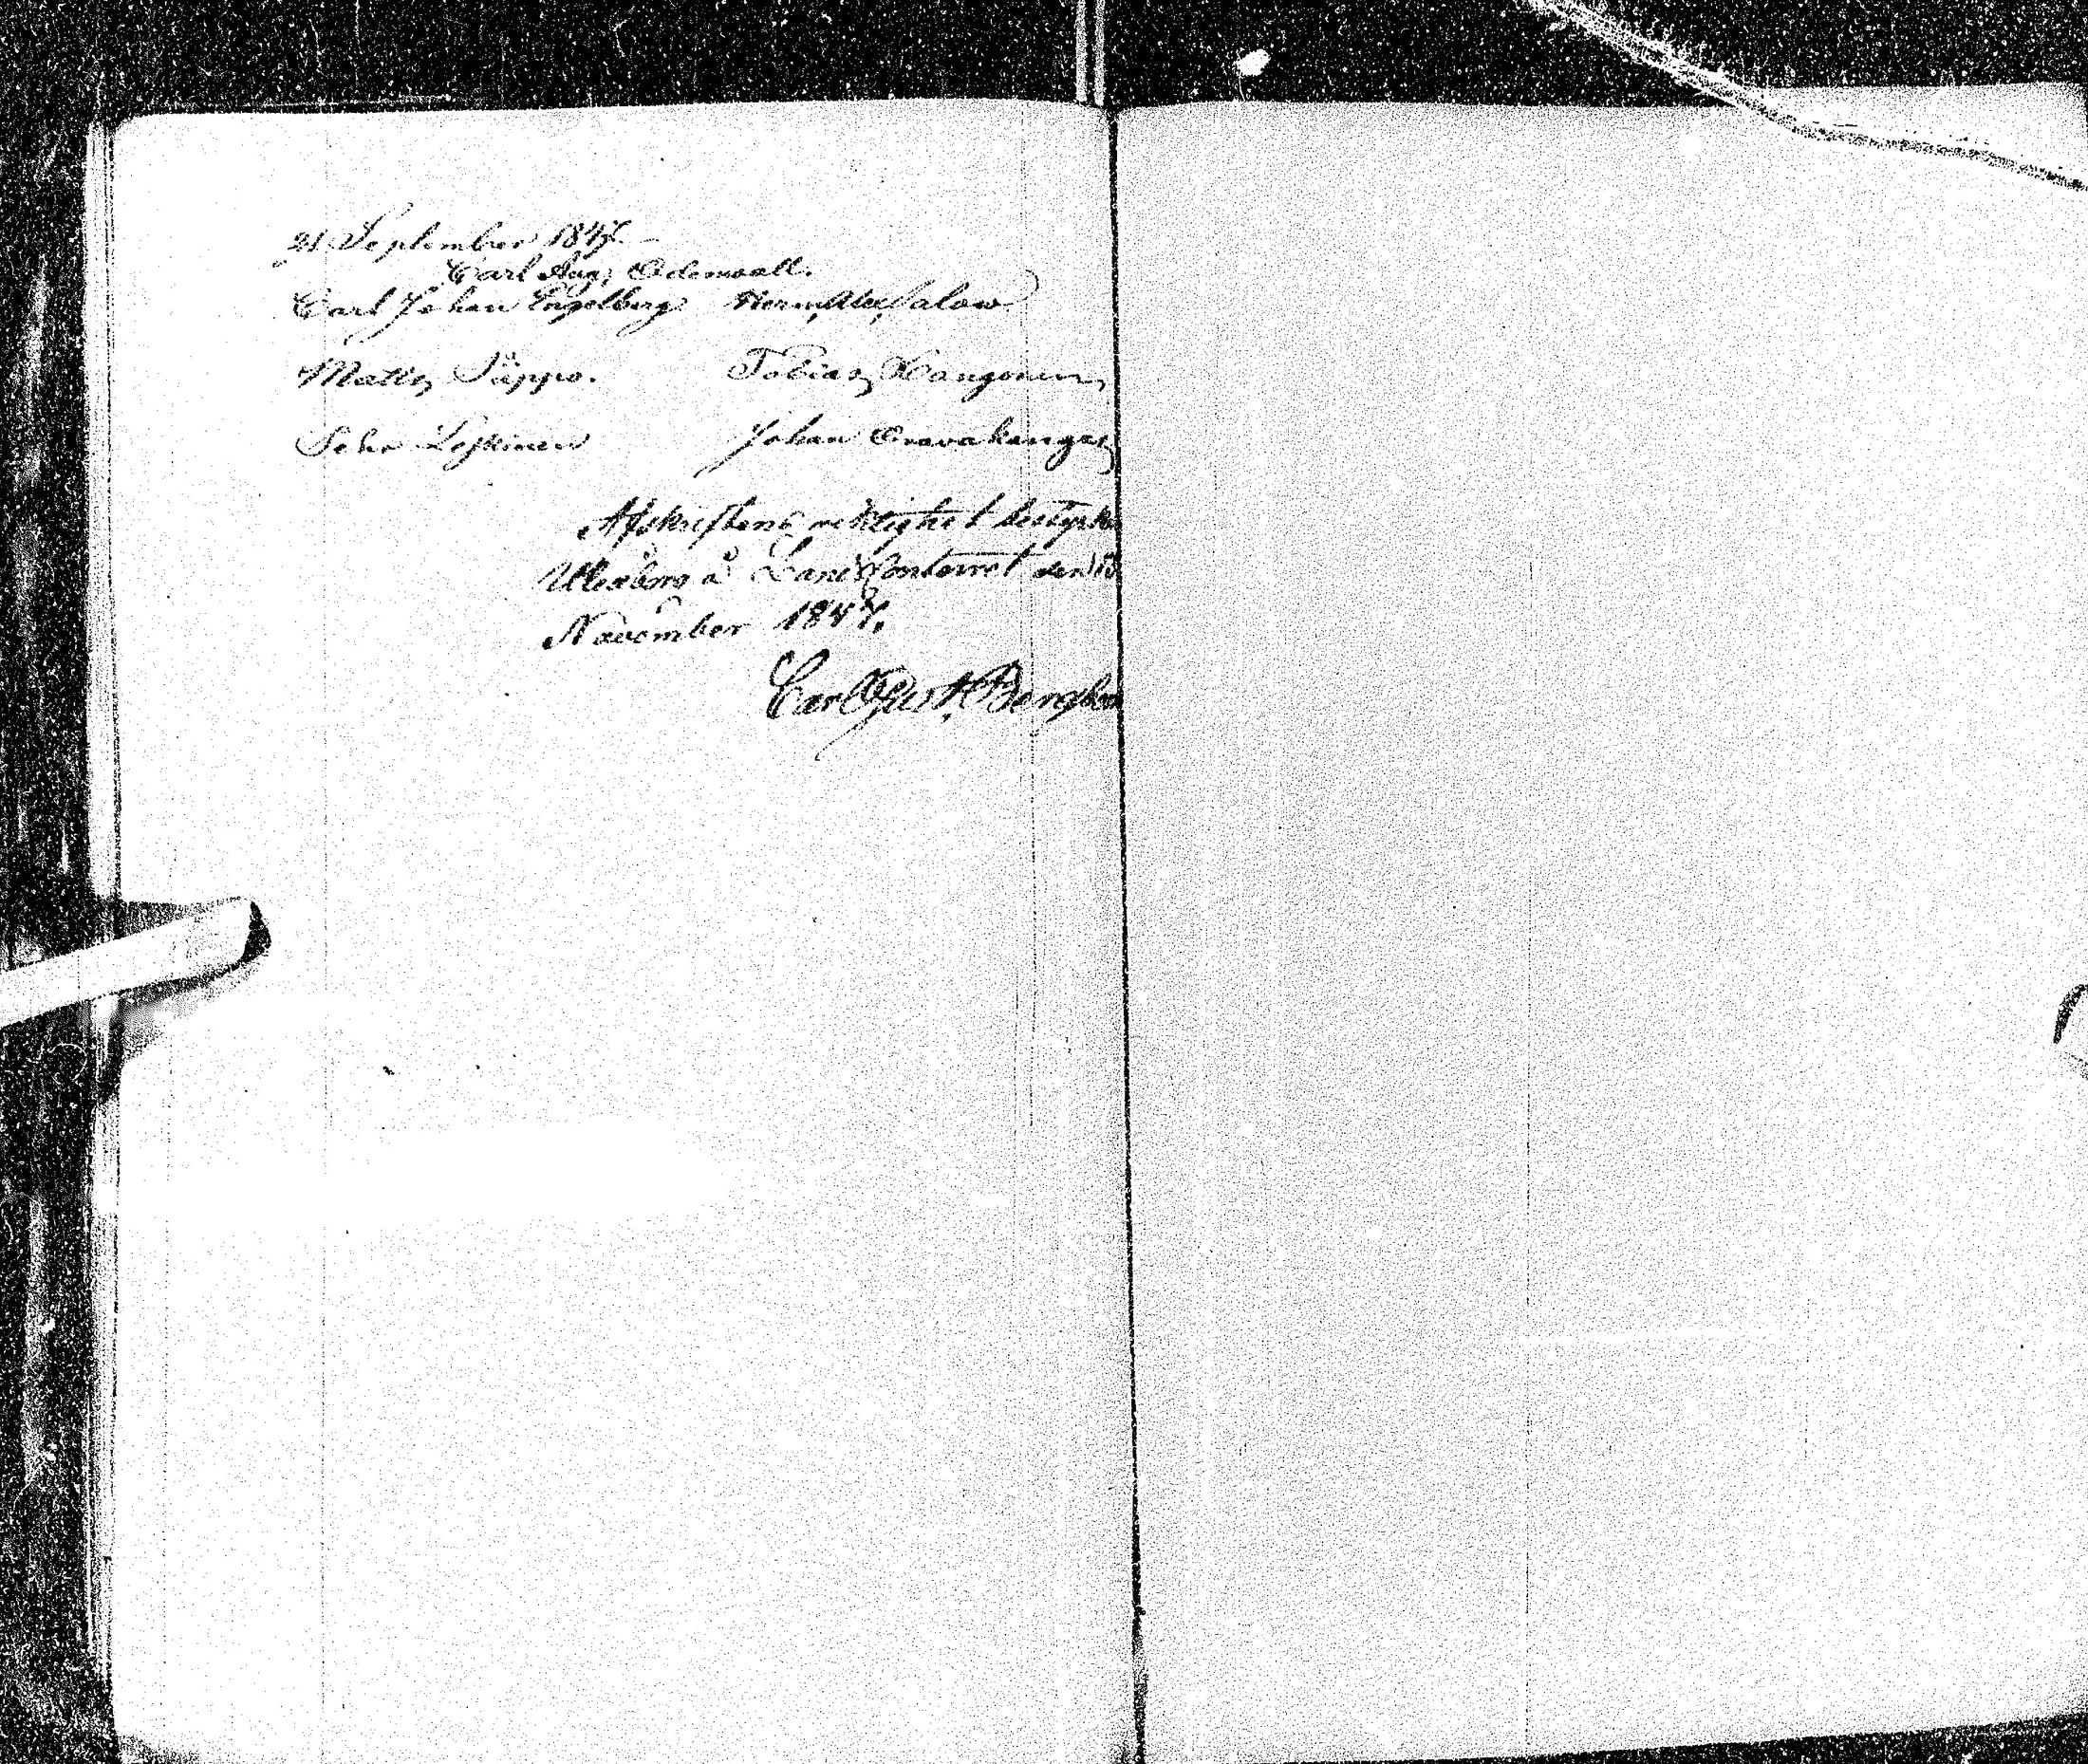 21 September 1847.
Carl Aug, Ödenwall.
Carl Johan Engelberg Herm, Alex, Salow
Matts, Säppo. Tobias, Kangonen,
Johan Oravakangas,
Afskriftens riktighet bestyrker
Uleåborg å Lands Contoiret den
November 1847.
Carl Gust. Bergbom